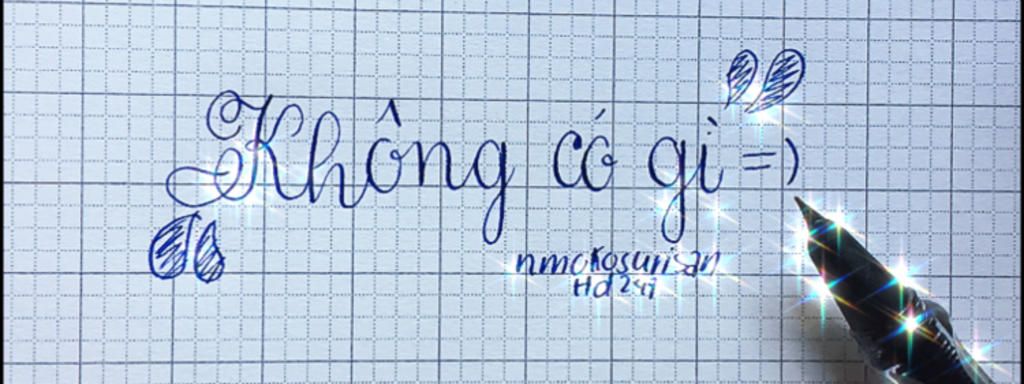 "Không có gì =)"
nmokosurisan
Hd 247